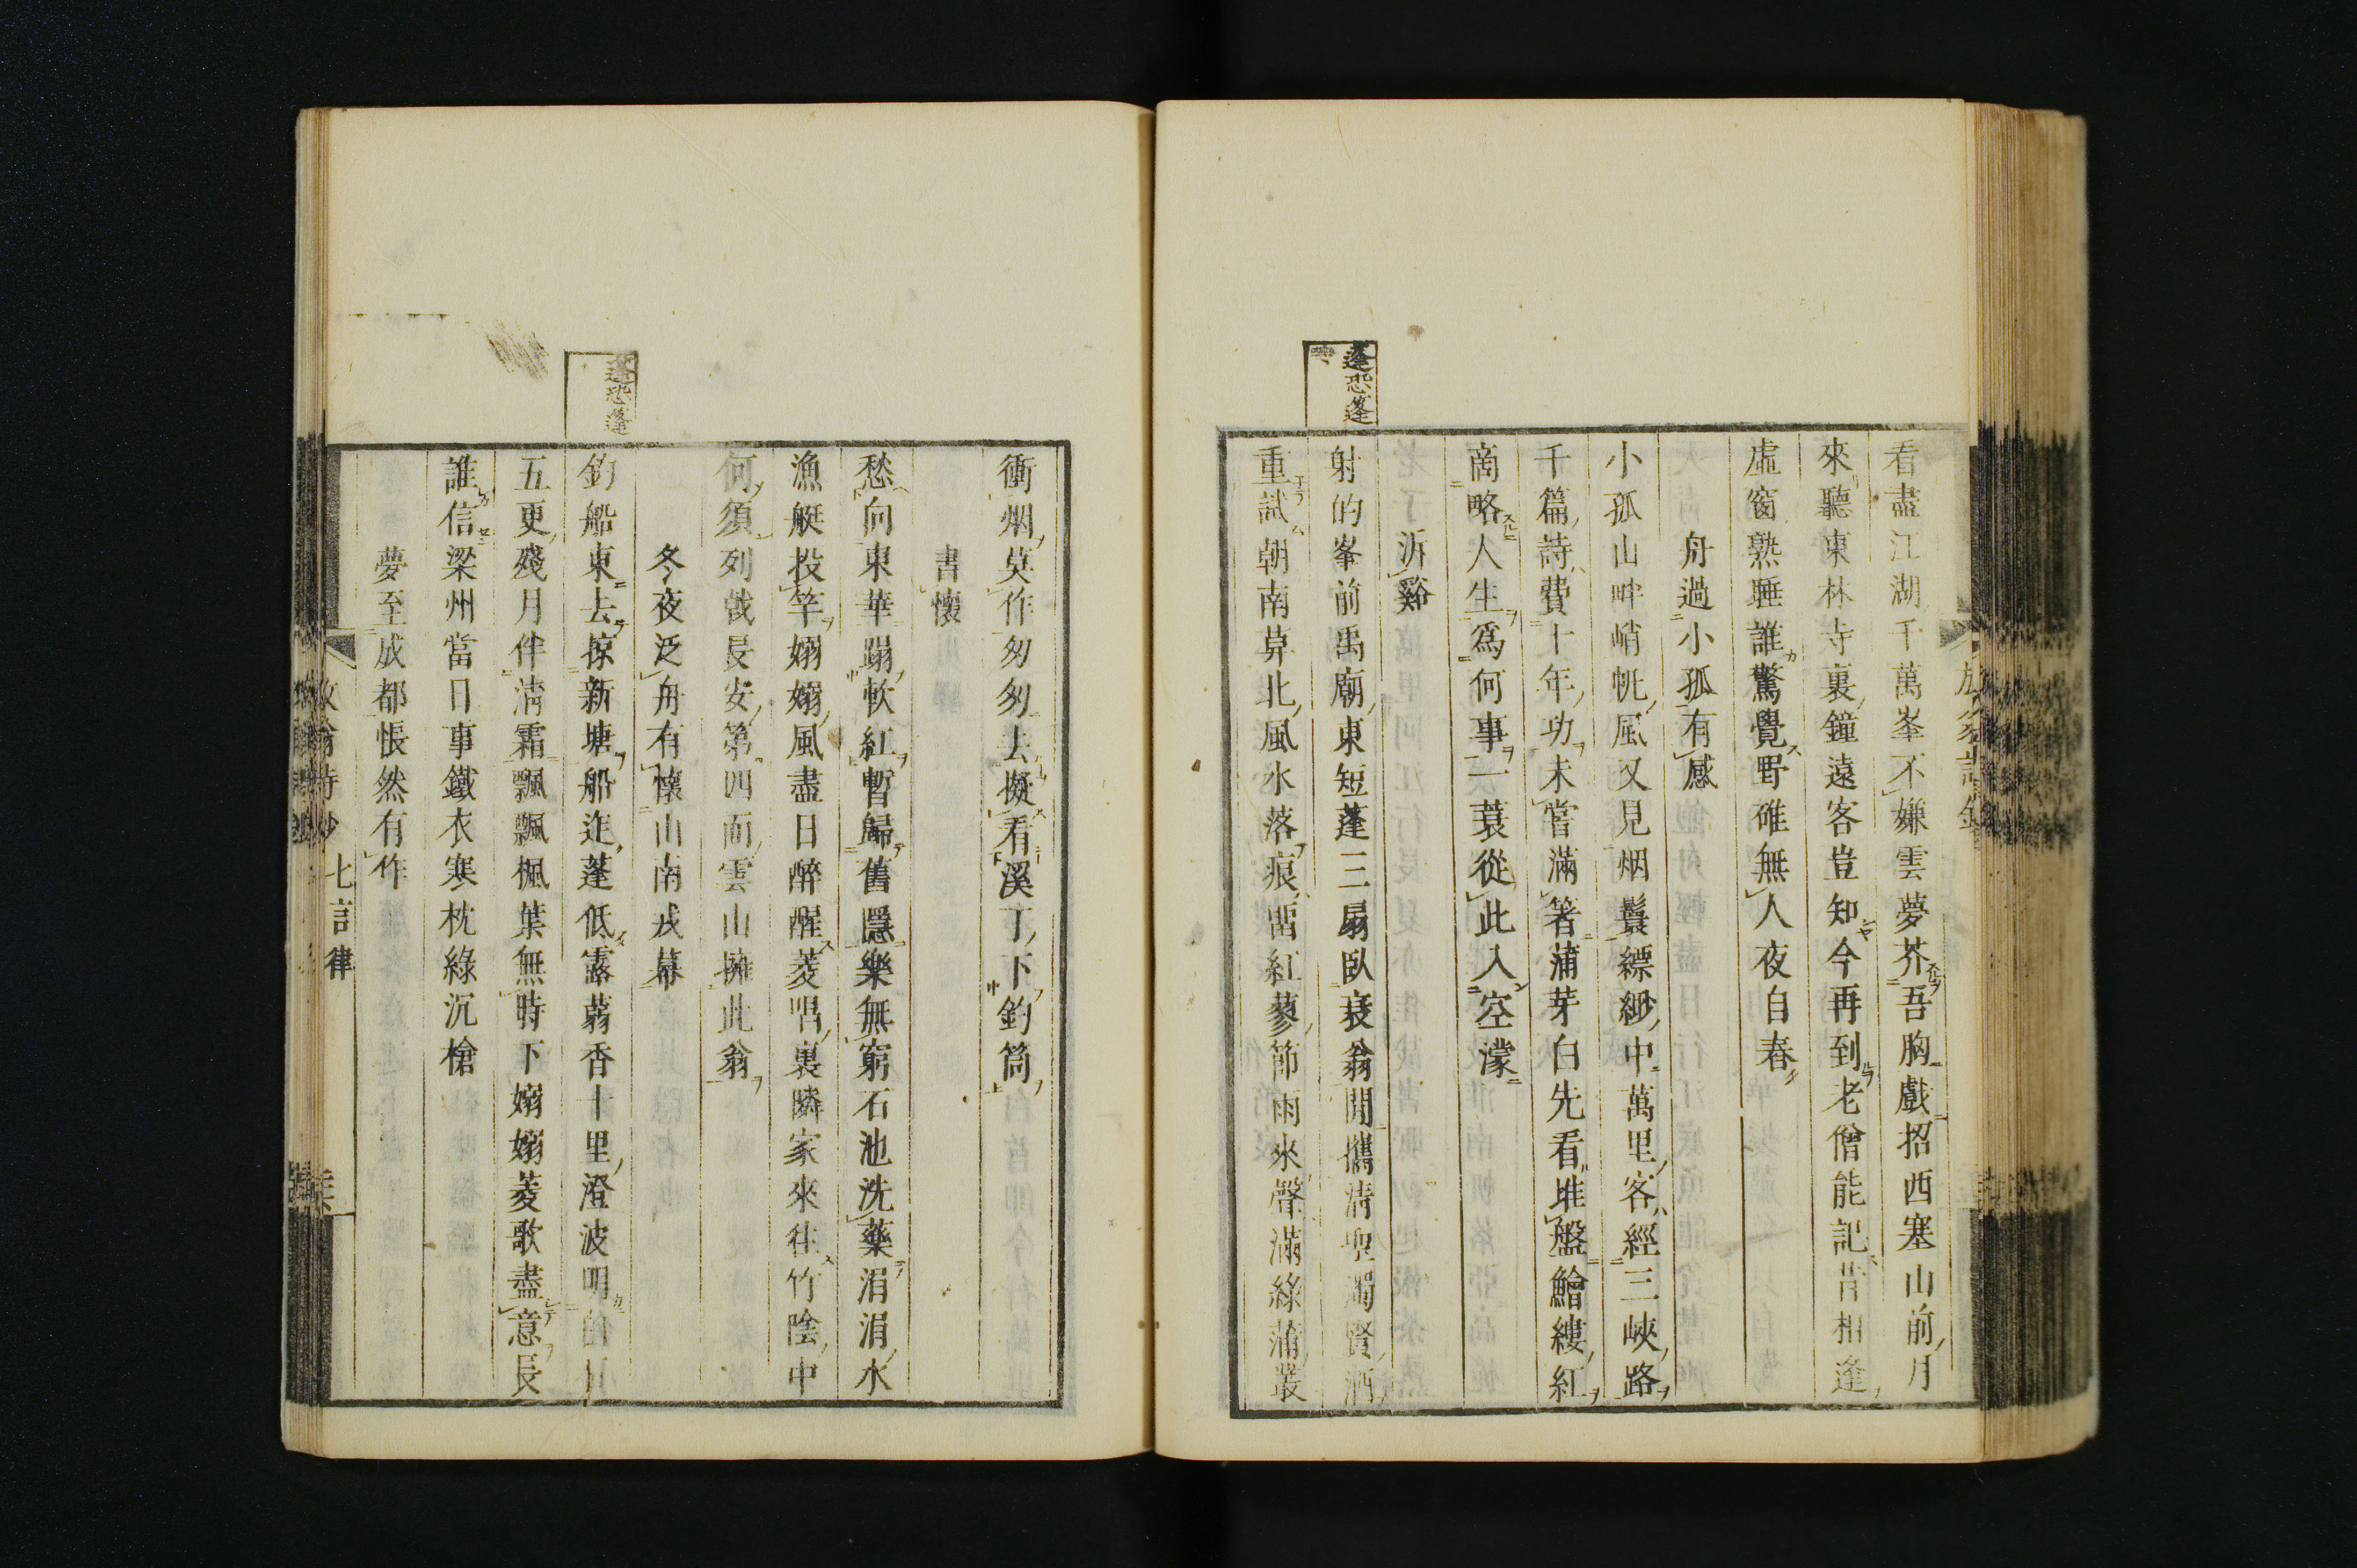 看盡江湖千萬峯不嫌雲夢芥吾胸戲招西塞山前月
來聽東林寺裏鐘遠客豈知今再到老僧能記昔相逢
虛窗熟睡誰驚覺野碓無人夜自舂
舟過小孤有感
小孤山畔峭帆風又見烟鬟縹緲中萬里客經三峽路
千篇詩費十年功未嘗滿箸蒲芽白先看堆盤鱠縷紅
商略人生爲何事一蓑從此入空濛
泝谿
蓬恐篷
射的峯前禹廟東短蓬三扇臥衰翁閒攜清聖濁賢酒
重試朝南莫北風水落痕留紅蓼節雨來聲滿綠蒲叢
衝烟莫作匆匆去擬看溪丁下釣筒
書懷
愁向東華蹋軟紅暫歸舊隱樂無窮石池洗藥涓涓水
漁艇投竿嫋嫋風盡日醉醒菱唱裏隣家來往竹陰中
何須列戟長安第四面雲山擁此翁
冬夜泛舟有懷山南戎幕
蓬恐篷
釣船東去掠新塘船迮蓬低露蒻香十里澄波明白石
五更殘月伴清霜飄飄楓葉無時下嫋嫋菱歌盡意長
誰信梁州當日事鐵衣寒枕綠沉槍
夢至成都悵然有作
放翁詩鈔 七言律